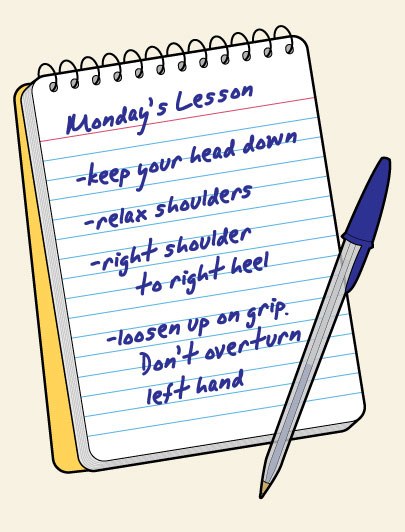 Monday's Lesson
-keep your head down
-relax shoulders
-right shoulder
to right heel
-loosen up on grip.
Don't overturn
left hand